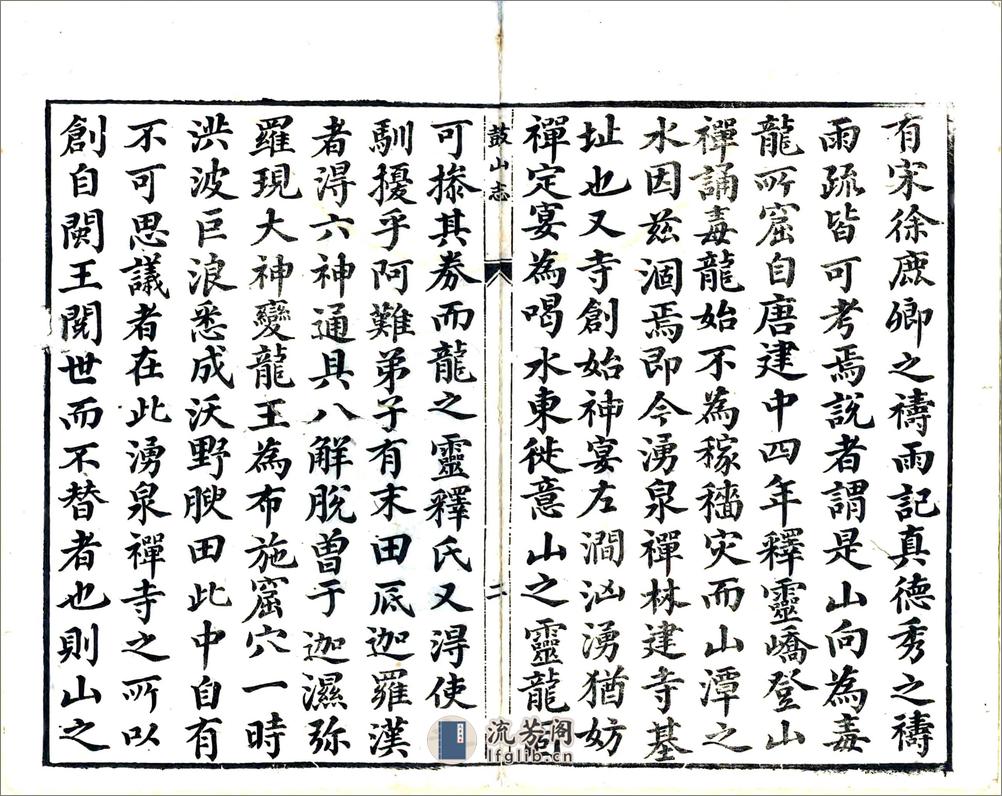 有宋徐鹿卿之禱雨記真德秀之禱
雨疏皆可考焉說者謂是山向為毒
龍所窟自唐建中四年釋靈嶠登山
禪誦毒龍始不為稼穡灾而山潭之
水因兹涸焉即今湧泉禪林建寺基
址也又寺創始神宴左澗汹湧猶妨
禪定宴為喝水東徙意山之靈龍
鼓山志
二
可摻其券而龍之靈釋氏又淂使
馴擾乎阿難弟子有末田底迦羅漢
者淂六神通具八解脫曽于迦濕弥
羅現大神變龍王為布施窟穴一時
洪波巨浪悉成沃野腴田此中自有
不可思議者在此湧泉禪寺之所以
創自閩王閱世而不替者也則山之
流芳阁
lfglib.cn